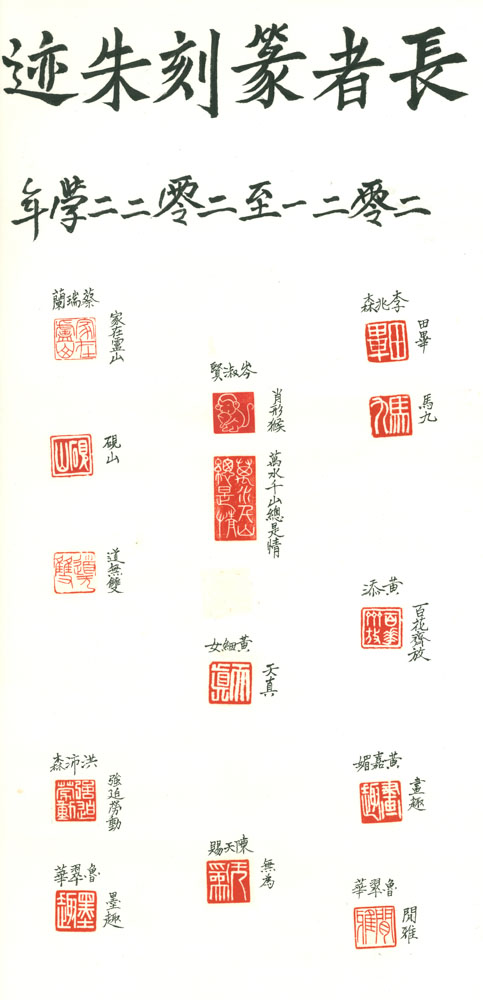 長者篆刻朱迹
二零二一至二零二二學年
李兆森
田畢
馬九
黃添
百花齊放
黃嘉媚
畫趣
魯翠華
閒雅
岑淑賢
肖形猴
萬水千山總是情
黃細女
天真
陳天賜
無為
蔡瑞蘭
家在霊山
硯山
道無雙
洪沛森
強迫勞動
魯翠華
墨趣